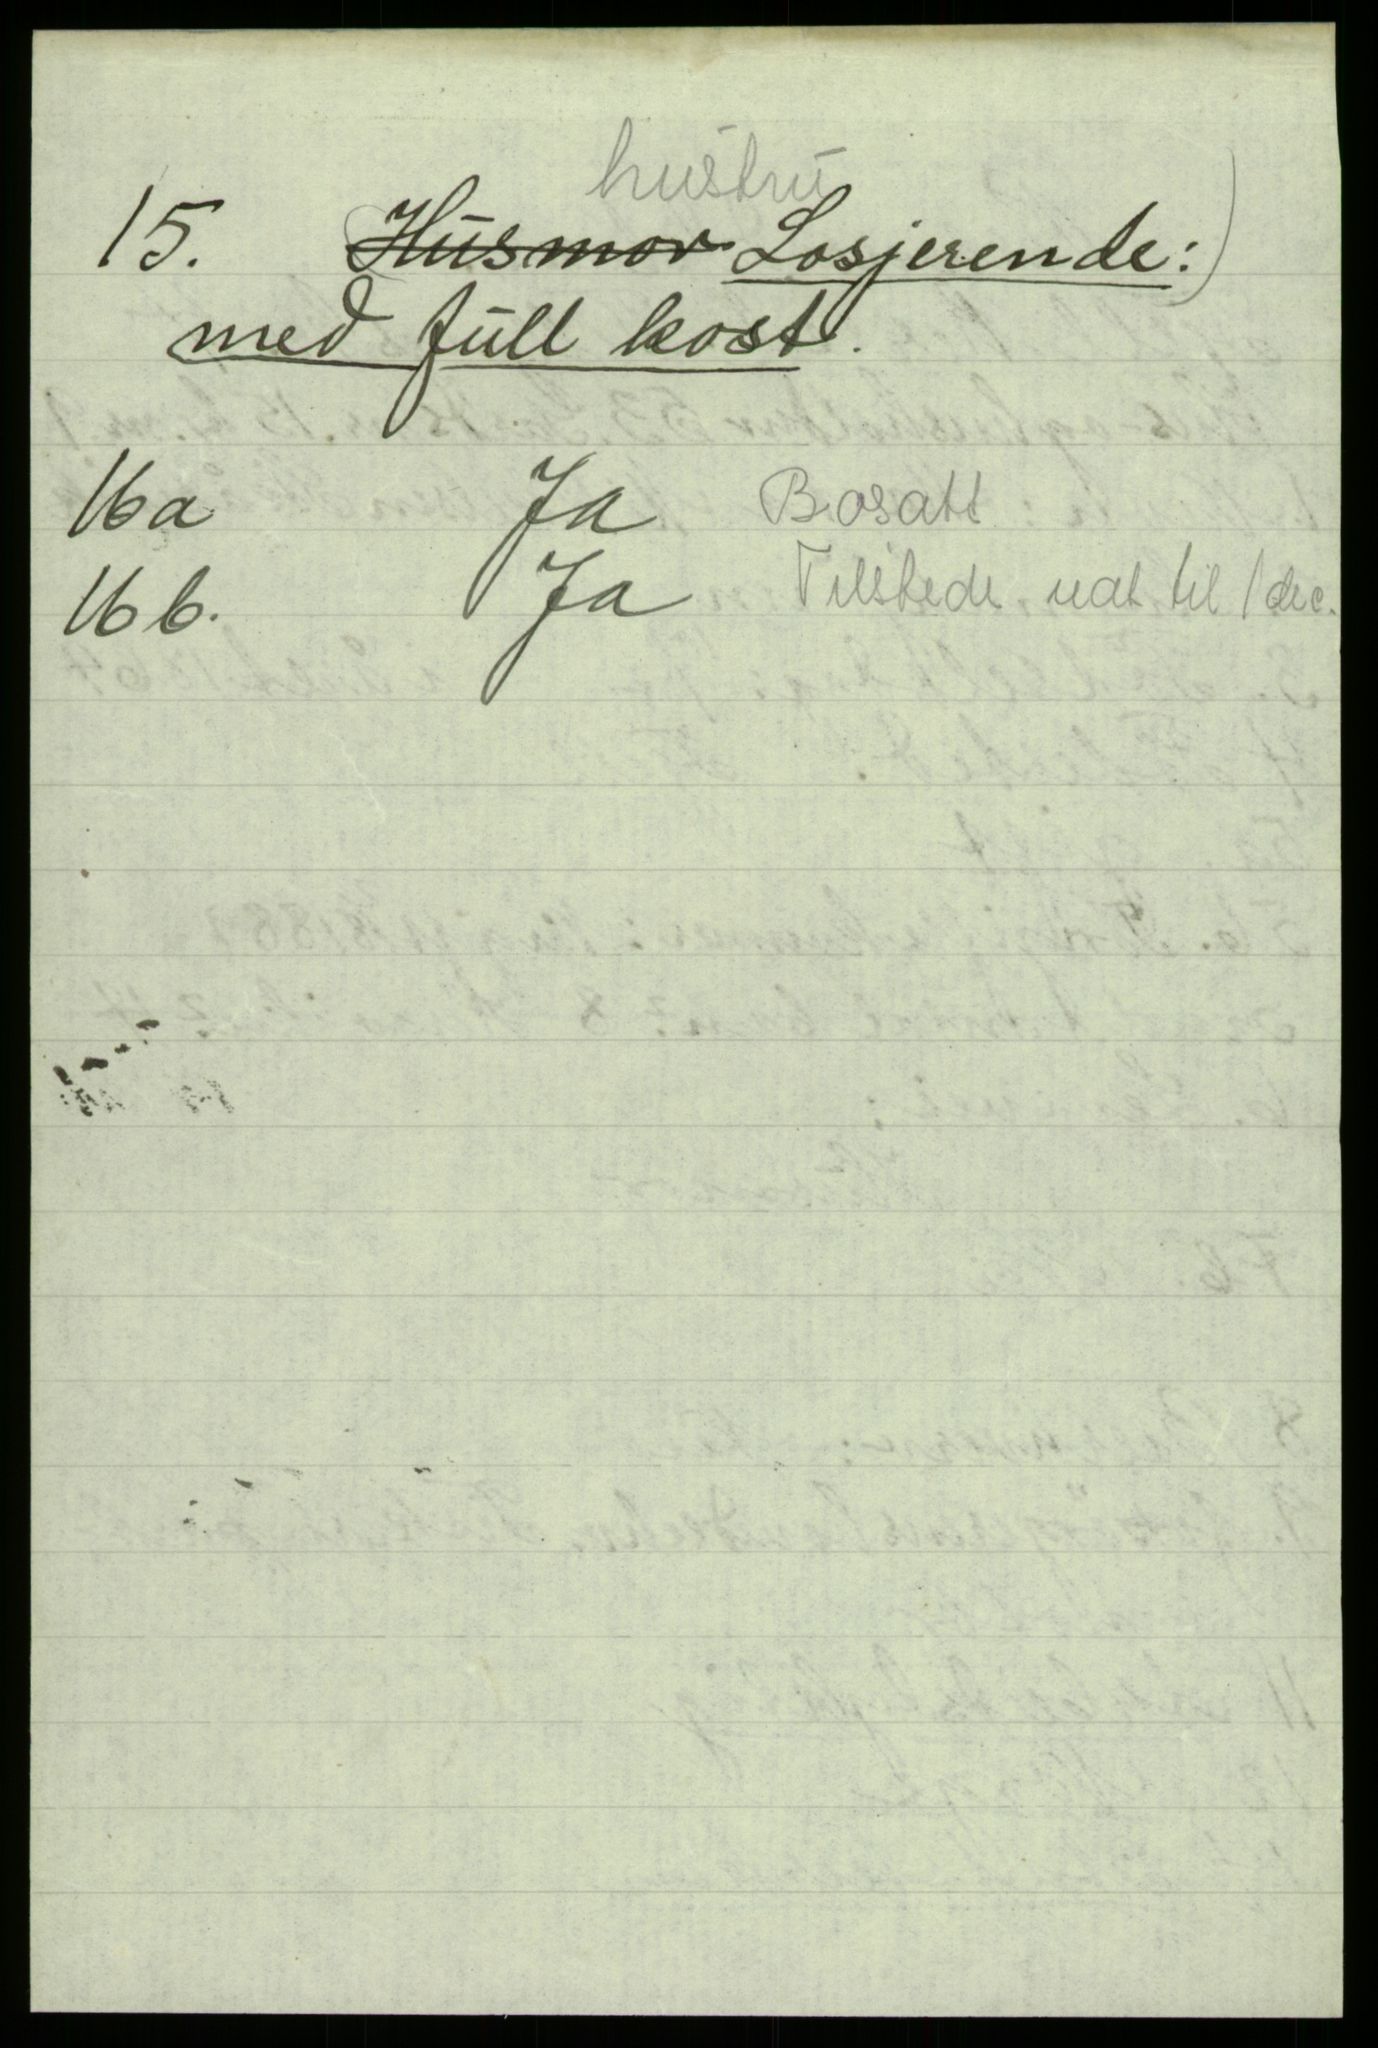 hustru
15. (Husmor Losjerende:)
med full kost.
16a Ja Bosatt
16b. Ja Tilstede nat til 1 dec.